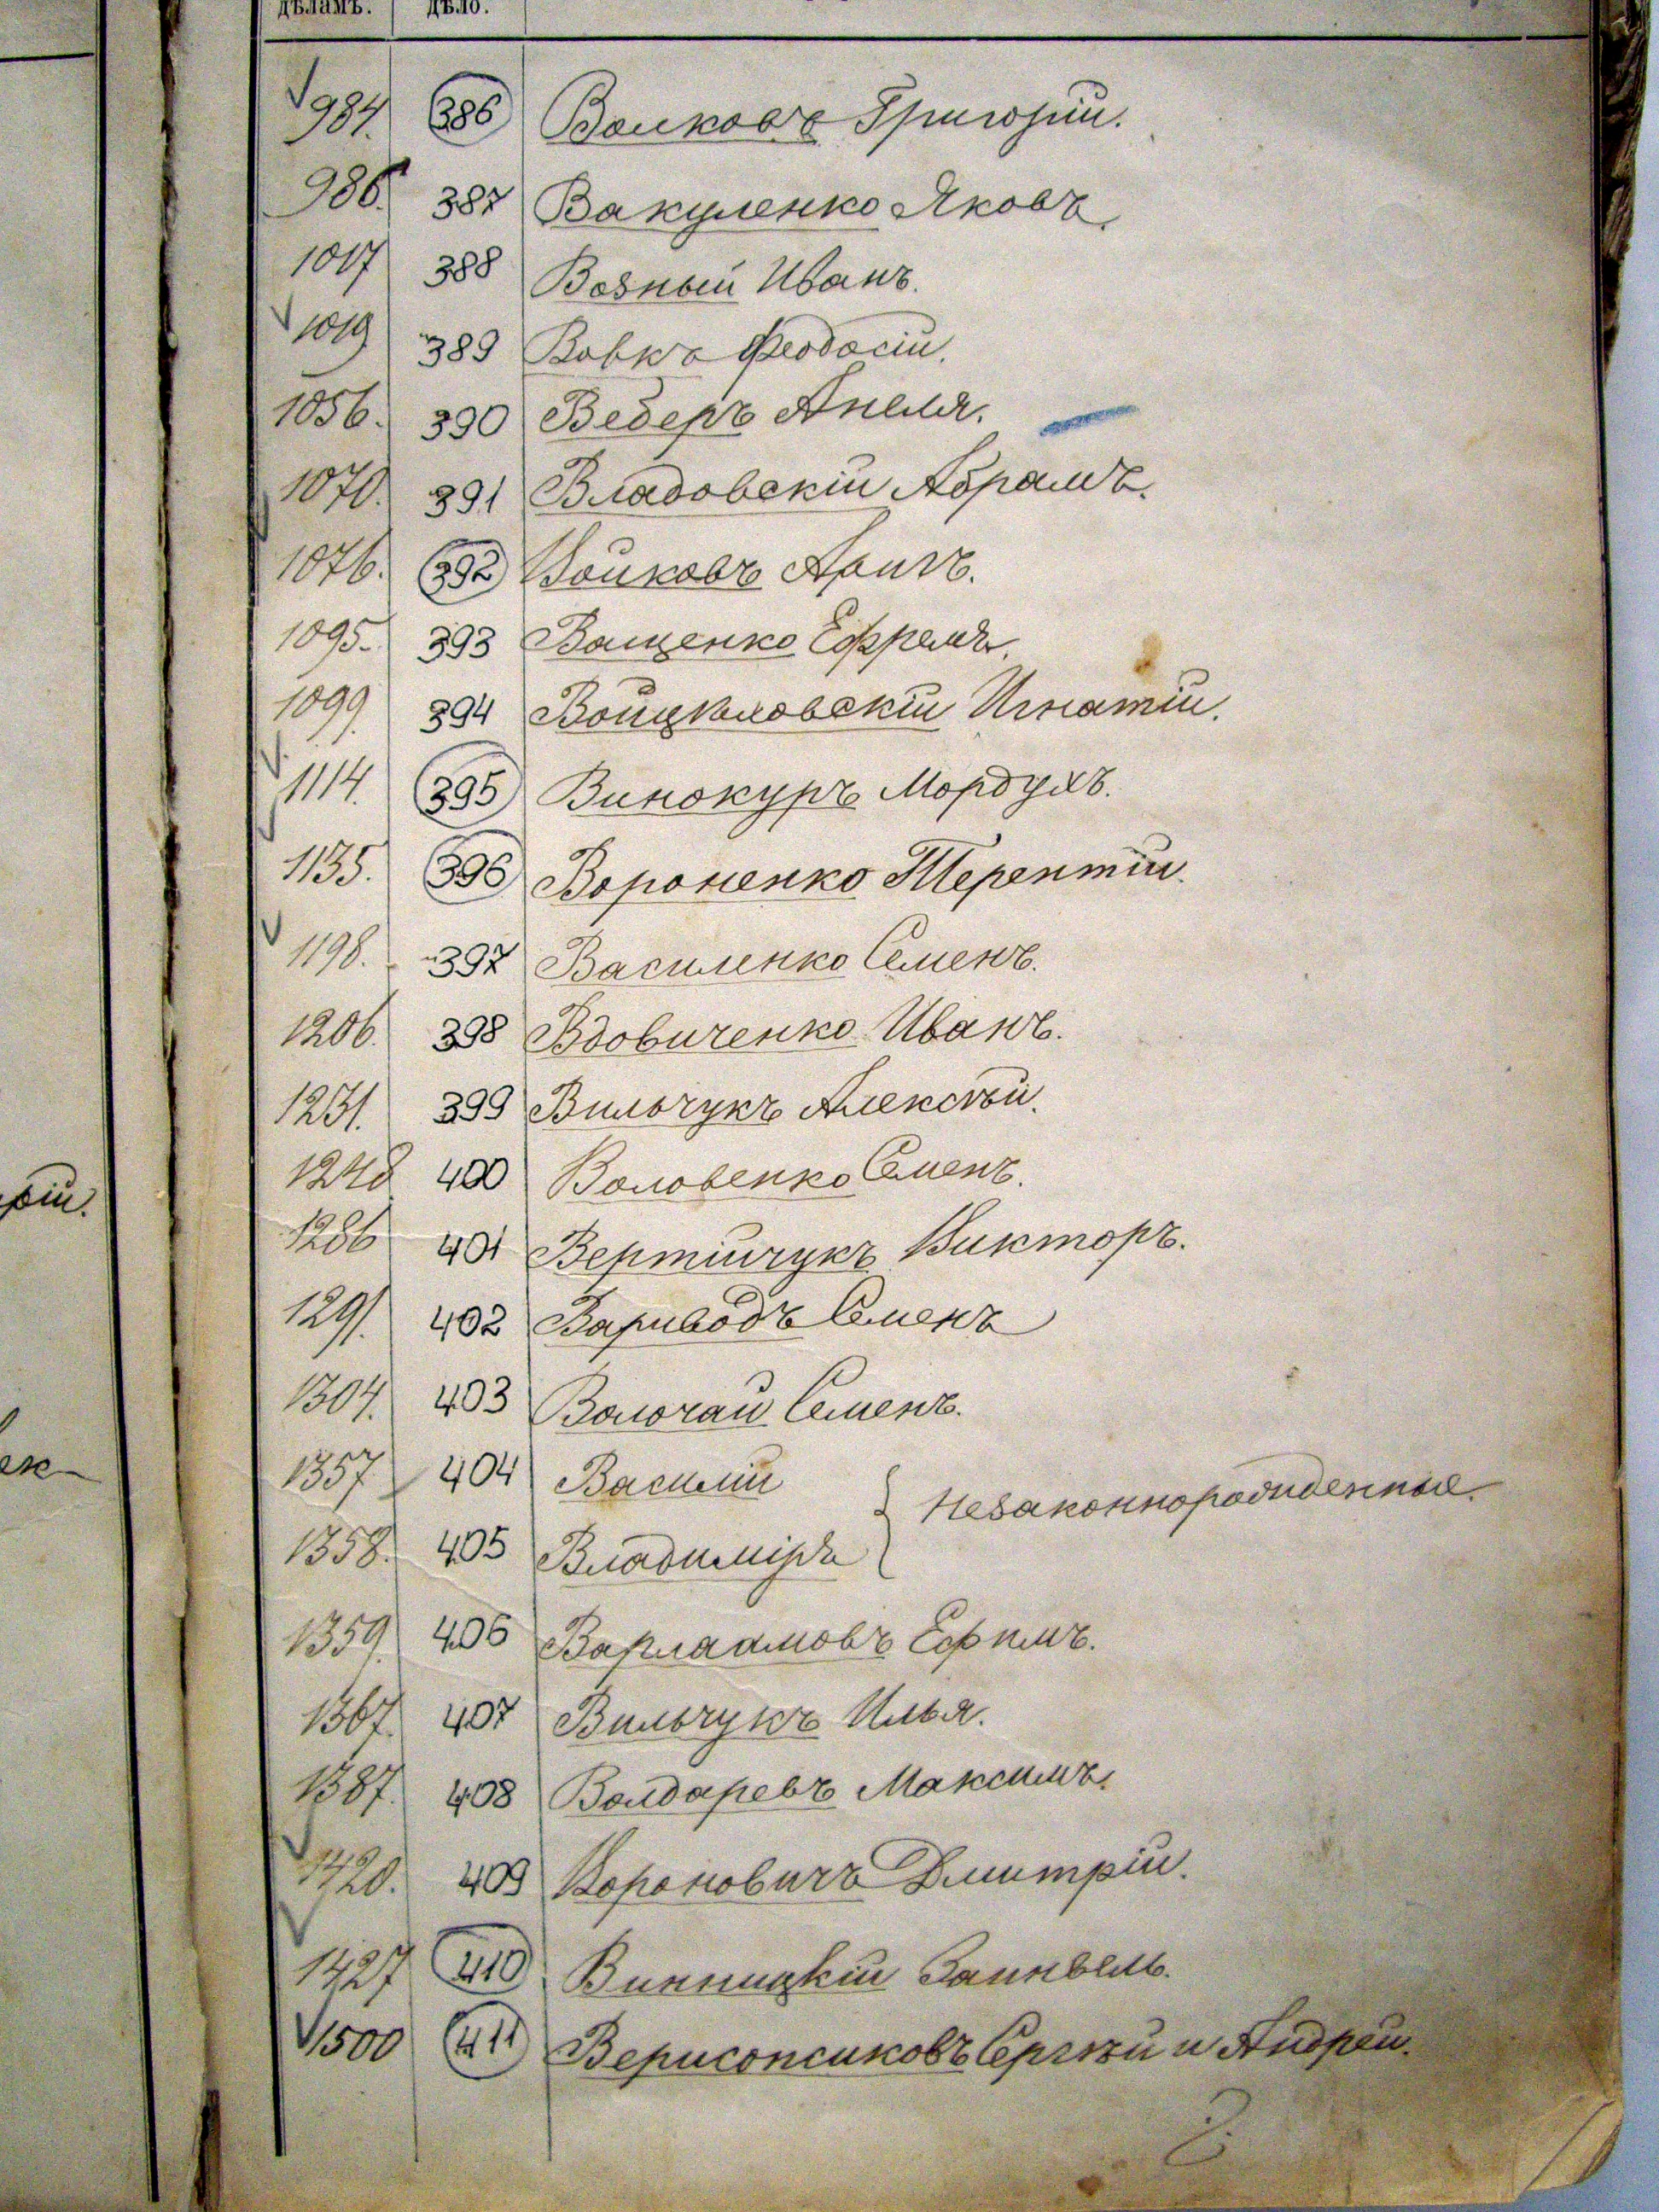 дѣламъ. дѣло.
984. 386 Волковъ Григорій.
986. 387 Вакуленко Яковъ.
1017 388 Возный Иванъ.
1019 389 Вовкъ Феодосій.
1056. 390 Веберъ Анеля.
1070. 391 Владовскій Абрамъ.
1076. 392 Войковъ
1095. 393 Ващенко Ефремъ.
1099. 394 Войцѣховскій Игнатій.
1114. 395 Винокуръ Мордухъ.
1135. 396 Вороненко Терентій.
1198. 397 Василенко Семенъ.
1206. 398 Вдовиченко Иванъ.
1231. 399 Вильчукъ Алексѣй.
1248 400 Воловенко Семенъ.
1286 401 Вертійчукъ Викторъ.
1291. 402 Вариводъ Семенъ
1304. 403 Волочай Семенъ.
1357 404 Василій
незаконнорожденные.
1358. 405 Владиміръ
1359. 406 Варлаамовъ Ефимъ.
1367. 407 Вильчукъ Илья.
1387. 408 Волдаревъ Максимъ.
1420. 409 Вороновичъ Дмитрій.
1427 410 Винницкій Зайнвель.
1500 411 Сергѣй и Андрей.
рій.
ек-